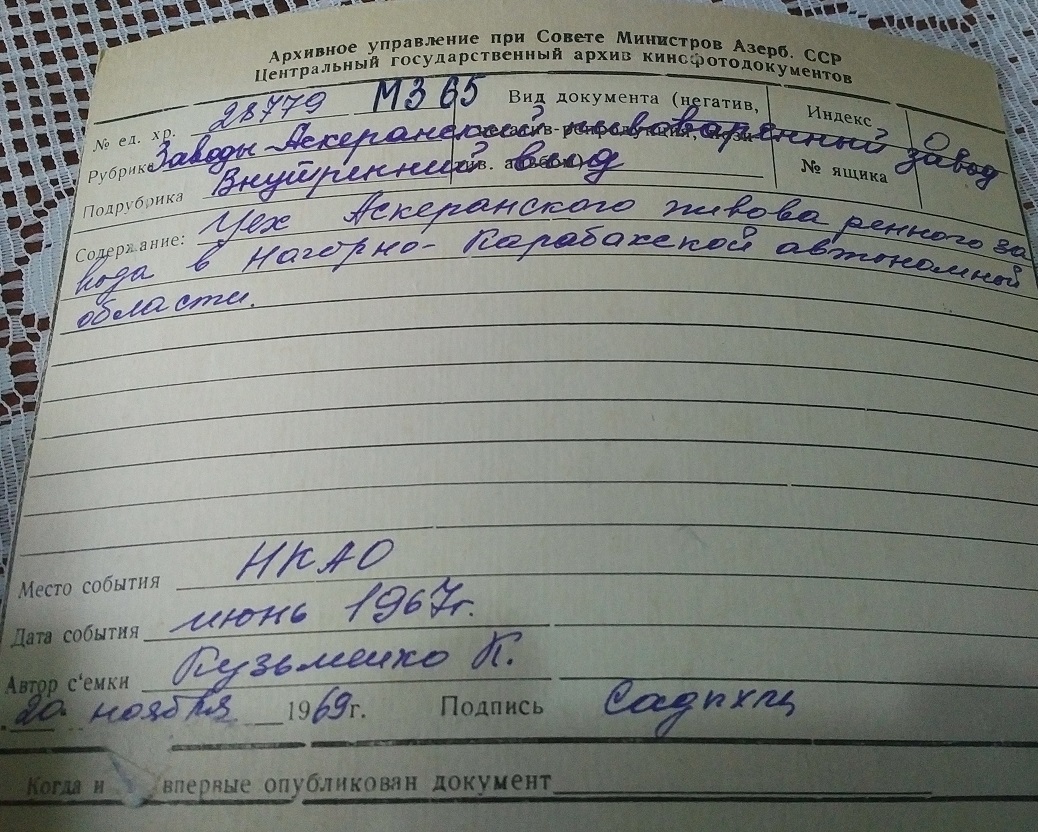 Архивное управление при Совете Министров Азерб. ССР
Центральный государственный архив кинофотодокументов
№ ед. хр. 28779 МЗ 65 Вид документа (негатив, Индекс О
Рубрика Заводы - Аскеранский пивоваренный завод
Подрубрика Внутренний вид № ящика
Содержание: Цех Аскеранского пивоваренного за
вода в Нагорно-Карабахской автономной
области.
Место события НКАО
Дата события июнь 1967г.
Автор с'емки Кузьменко К.
20 ноября 1969г. Подпись
Когда и впервые опубликован документ